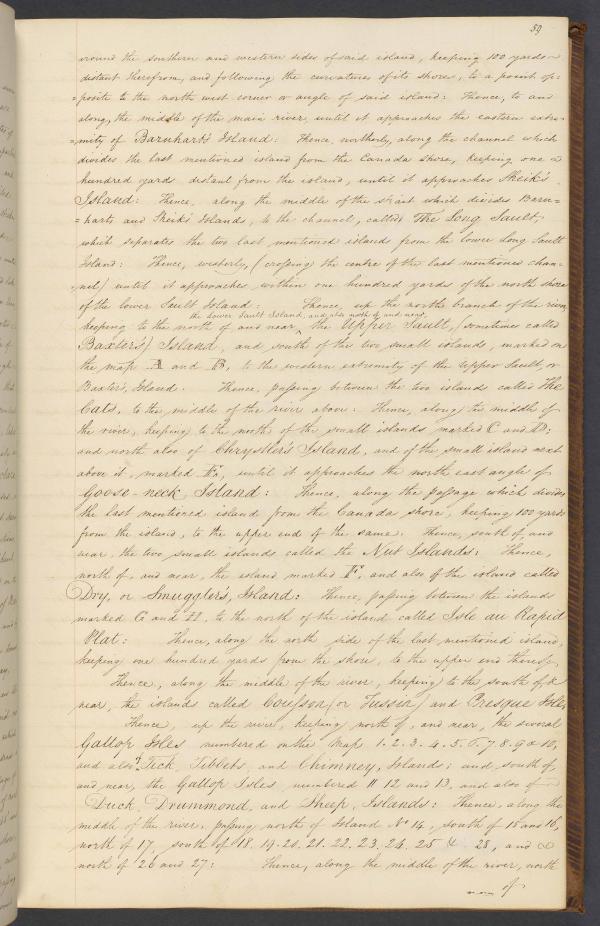 59
around the southern and western sides of said island, keeping 100 yards
distant therefrom, and following the curvatures of its shores, to a point op-
=posite to the north west corner or angle of said island: Thence, to and
along, the middle of the main river, until it approaches the eastern extre-
=mity of Barnhart's Island: Thence, northerly, along the channel which
divides the last mentioned island from the Canada shore, keeping one
hundred yards distant from the island, until it approaches Sheik's
Island: Thence, along the middle of the strait which divides Barn-
=harts and Sheik's Islands, to the channel, called The Long Sault,
which separates the two last mentioned islands from the lower Long Sault
Island: Thence, westerly, (crossing the centre of the last mentioned chan-
nel) until it approaches within one hundred yards of the north shore
of the lower Sault Island: Thence, up the north branch of the river,
the lower Sault Island, and also north of and near,
keeping to the north of and near, ^ the Upper Sault, (sometimes called
Baxter's) Island, and south of the two small islands, marked on
the map A and B, to the western extremity of the Upper Sault, or
Baxter's, Island. Thence, passing between the two island called The
Cats, to the middle of the river above: Thence, along the middle of
the river, keeping to the north of the small islands marked C and D;
and north also of Chrystler's Island, and of the small island next
above it, marked E, until it approaches the north east angle of
Goose-neck Island: Thence, along the passage which divides
the last mentioned island from the Canada shore, keeping 100 yards
from the island, to the upper end of the same: Thence, south of, and
near, the two small islands called the Nut Islands: Thence,
north of, and near, the island marked F, and also of the island called
Dry, or Smuggler's, Island: Thence, passing between the islands
marked G and H, to the north of the island called Isle au Rapid
Plat: Thence, along the north side of the last mentioned island,
keeping one hundred yards from the shore, to the upper end thereof,
Thence, along the middle of the river, keeping to the south of, &
near, the islands called Cousson (or Tussin) and Presque Isle.
Thence, up the river, keeping north of, and near, the several
Gallop Isles numbered on the Map 1. 2. 3. 4. 5. 6. 7. 8. 9 & 10,
and also of Tick, Tibbets, and Chimney, Islands; and south of,
and near, the Gallop Isles, numbered 11 12 and 13, and also of
Duck, Drummond, and Sheep, Islands: Thence, along the
middle of the river, passing north of Island No 14, south of 15 and 16,
north of 17, south of 18. 19. 20. 21. 22. 23. 24. 25 & 28, and
north of 26 and 27: Thence, along the middle of the river, north
of